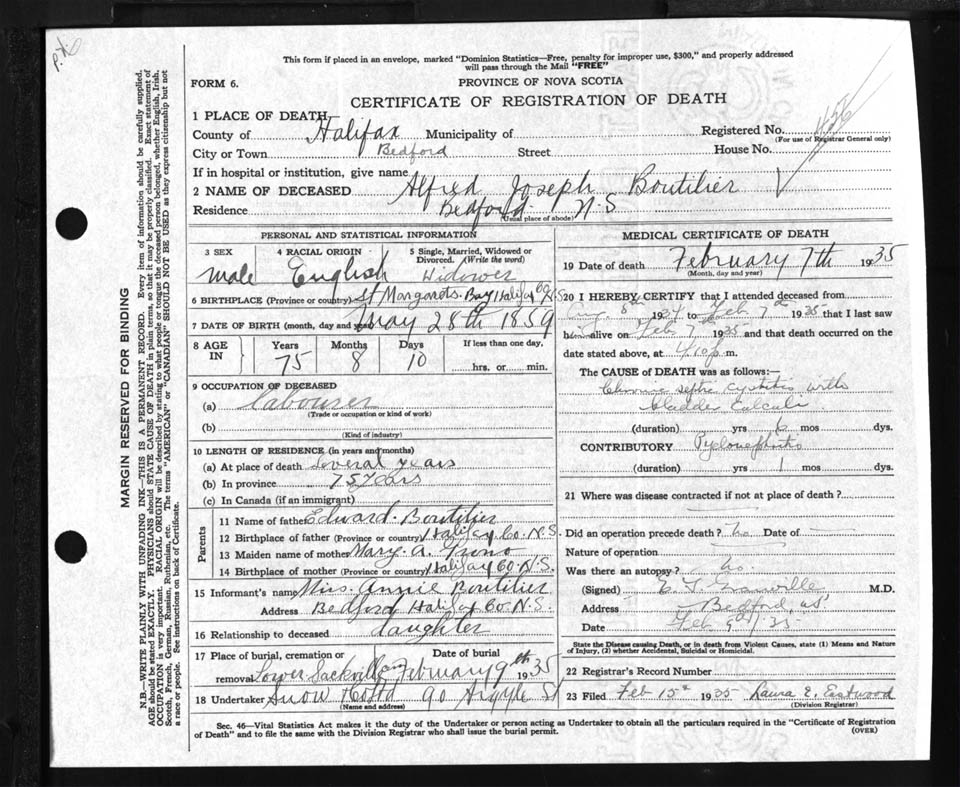 P.X.
This form if placed in an envelope, marked "Dominion Statistics—Free, penalty for improper use, $300," and properly addressed
will pass through the Mail "FREE"
FORM 6.
PROVINCE OF NOVA SCOTIA
CERTIFICATE OF REGISTRATION OF DEATH
1 PLACE OF DEATH
County of Halifax Municipality of
Registered No.
(For use of Registrar General only)
City or Town Bedford Street House No.
If in hospital or institution, give name
2 NAME OF DECEASED Alfred Joseph Boutilier
Residence Bedford N.S
(Usual place of abode)
PERSONAL AND STATISTICAL INFORMATION
3 SEX 4 RACIAL ORIGIN 5 Single, Married, Widowed or Divorced. (Write the word)
male English Widower
6 BIRTHPLACE (Province or country) St Margarets Bay Halifax Co N.S
7 DATE OF BIRTH (month, day and year) May 28th 1859
8 AGE IN Years Months Days If less than one day,
75 8 10 hrs. or min.
9 OCCUPATION OF DECEASED
(a) labourer
(Trade or occupation or kind of work)
(b)
(Kind of industry)
10 LENGTH OF RESIDENCE (in years and months)
(a) At place of death several years
(b) In province 75 years
(c) In Canada (if an immigrant)
Parents
11 Name of father Edward Boutilier
12 Birthplace of father (Province or country) Halifax Co. N.S.
13 Maiden name of mother Mary A.
14 Birthplace of mother (Province or country) Halifax Co. N.S.
15 Informant's name Miss Annie Boutilier
Address Bedford Halifax Co. N.S.
16 Relationship to deceased daughter
17 Place of burial, cremation or Date of burial
removal Lower Sackville February 9th 1935
18 Undertaker Snow 90 Argyle St
(Name and address)
MEDICAL CERTIFICATE OF DEATH
19 Date of death February 7th 1935
(Month, day and year)
20 I HEREBY CERTIFY that I attended deceased from
8th 1934 to Feb 7th 1935 that I last saw
him alive on Feb 7th 1935 and that death occurred on the
date stated above, at 4.10 p. m.
The CAUSE of DEATH was as follows:—
Chronic septic cystitis with
bladder calculi
(duration) yrs 6 mos dys.
CONTRIBUTORY Pyelonephritis
(duration) yrs 1 mos dys.
21 Where was disease contracted if not at place of death?
Did an operation precede death? no Date of
Nature of operation
Was there an autopsy? no.
(Signed) M.D.
Address Bedford, NS
Date Feb 9th/35
State the Disease causing Death, or in death from Violent Causes, state (1) Means and Nature
of Injury, (2) whether Accidental, Suicidal or Homicidal.
22 Registrar's Record Number
23 Filed Feb 15th 1935 Laura E. Eastwood
(Division Registrar)
Sec. 46—Vital Statistics Act makes it the duty of the Undertaker or person acting as Undertaker to obtain all the particulars required in the "Certificate of Registration
of Death" and to file the same with the Division Registrar who shall issue the burial permit.
(OVER)
MARGIN RESERVED FOR BINDING
N.B.—WRITE PLAINLY WITH UNFADING INK—THIS IS A PERMANENT RECORD. Every item of information should be carefully supplied.
AGE should be stated EXACTLY. PHYSICIANS should STATE CAUSE OF DEATH in plain terms, so that it may be properly classified. Exact statement of
OCCUPATION is very important. RACIAL ORIGIN will be described by stating to what people or tongue the deceased person belonged, whether English, Irish,
Scotch, French, German, Russian, Ruthenian, etc. The terms "AMERICAN" or "CANADIAN" SHOULD NOT BE USED as they express citizenship but not
a race or people. See instructions on back of Certificate.